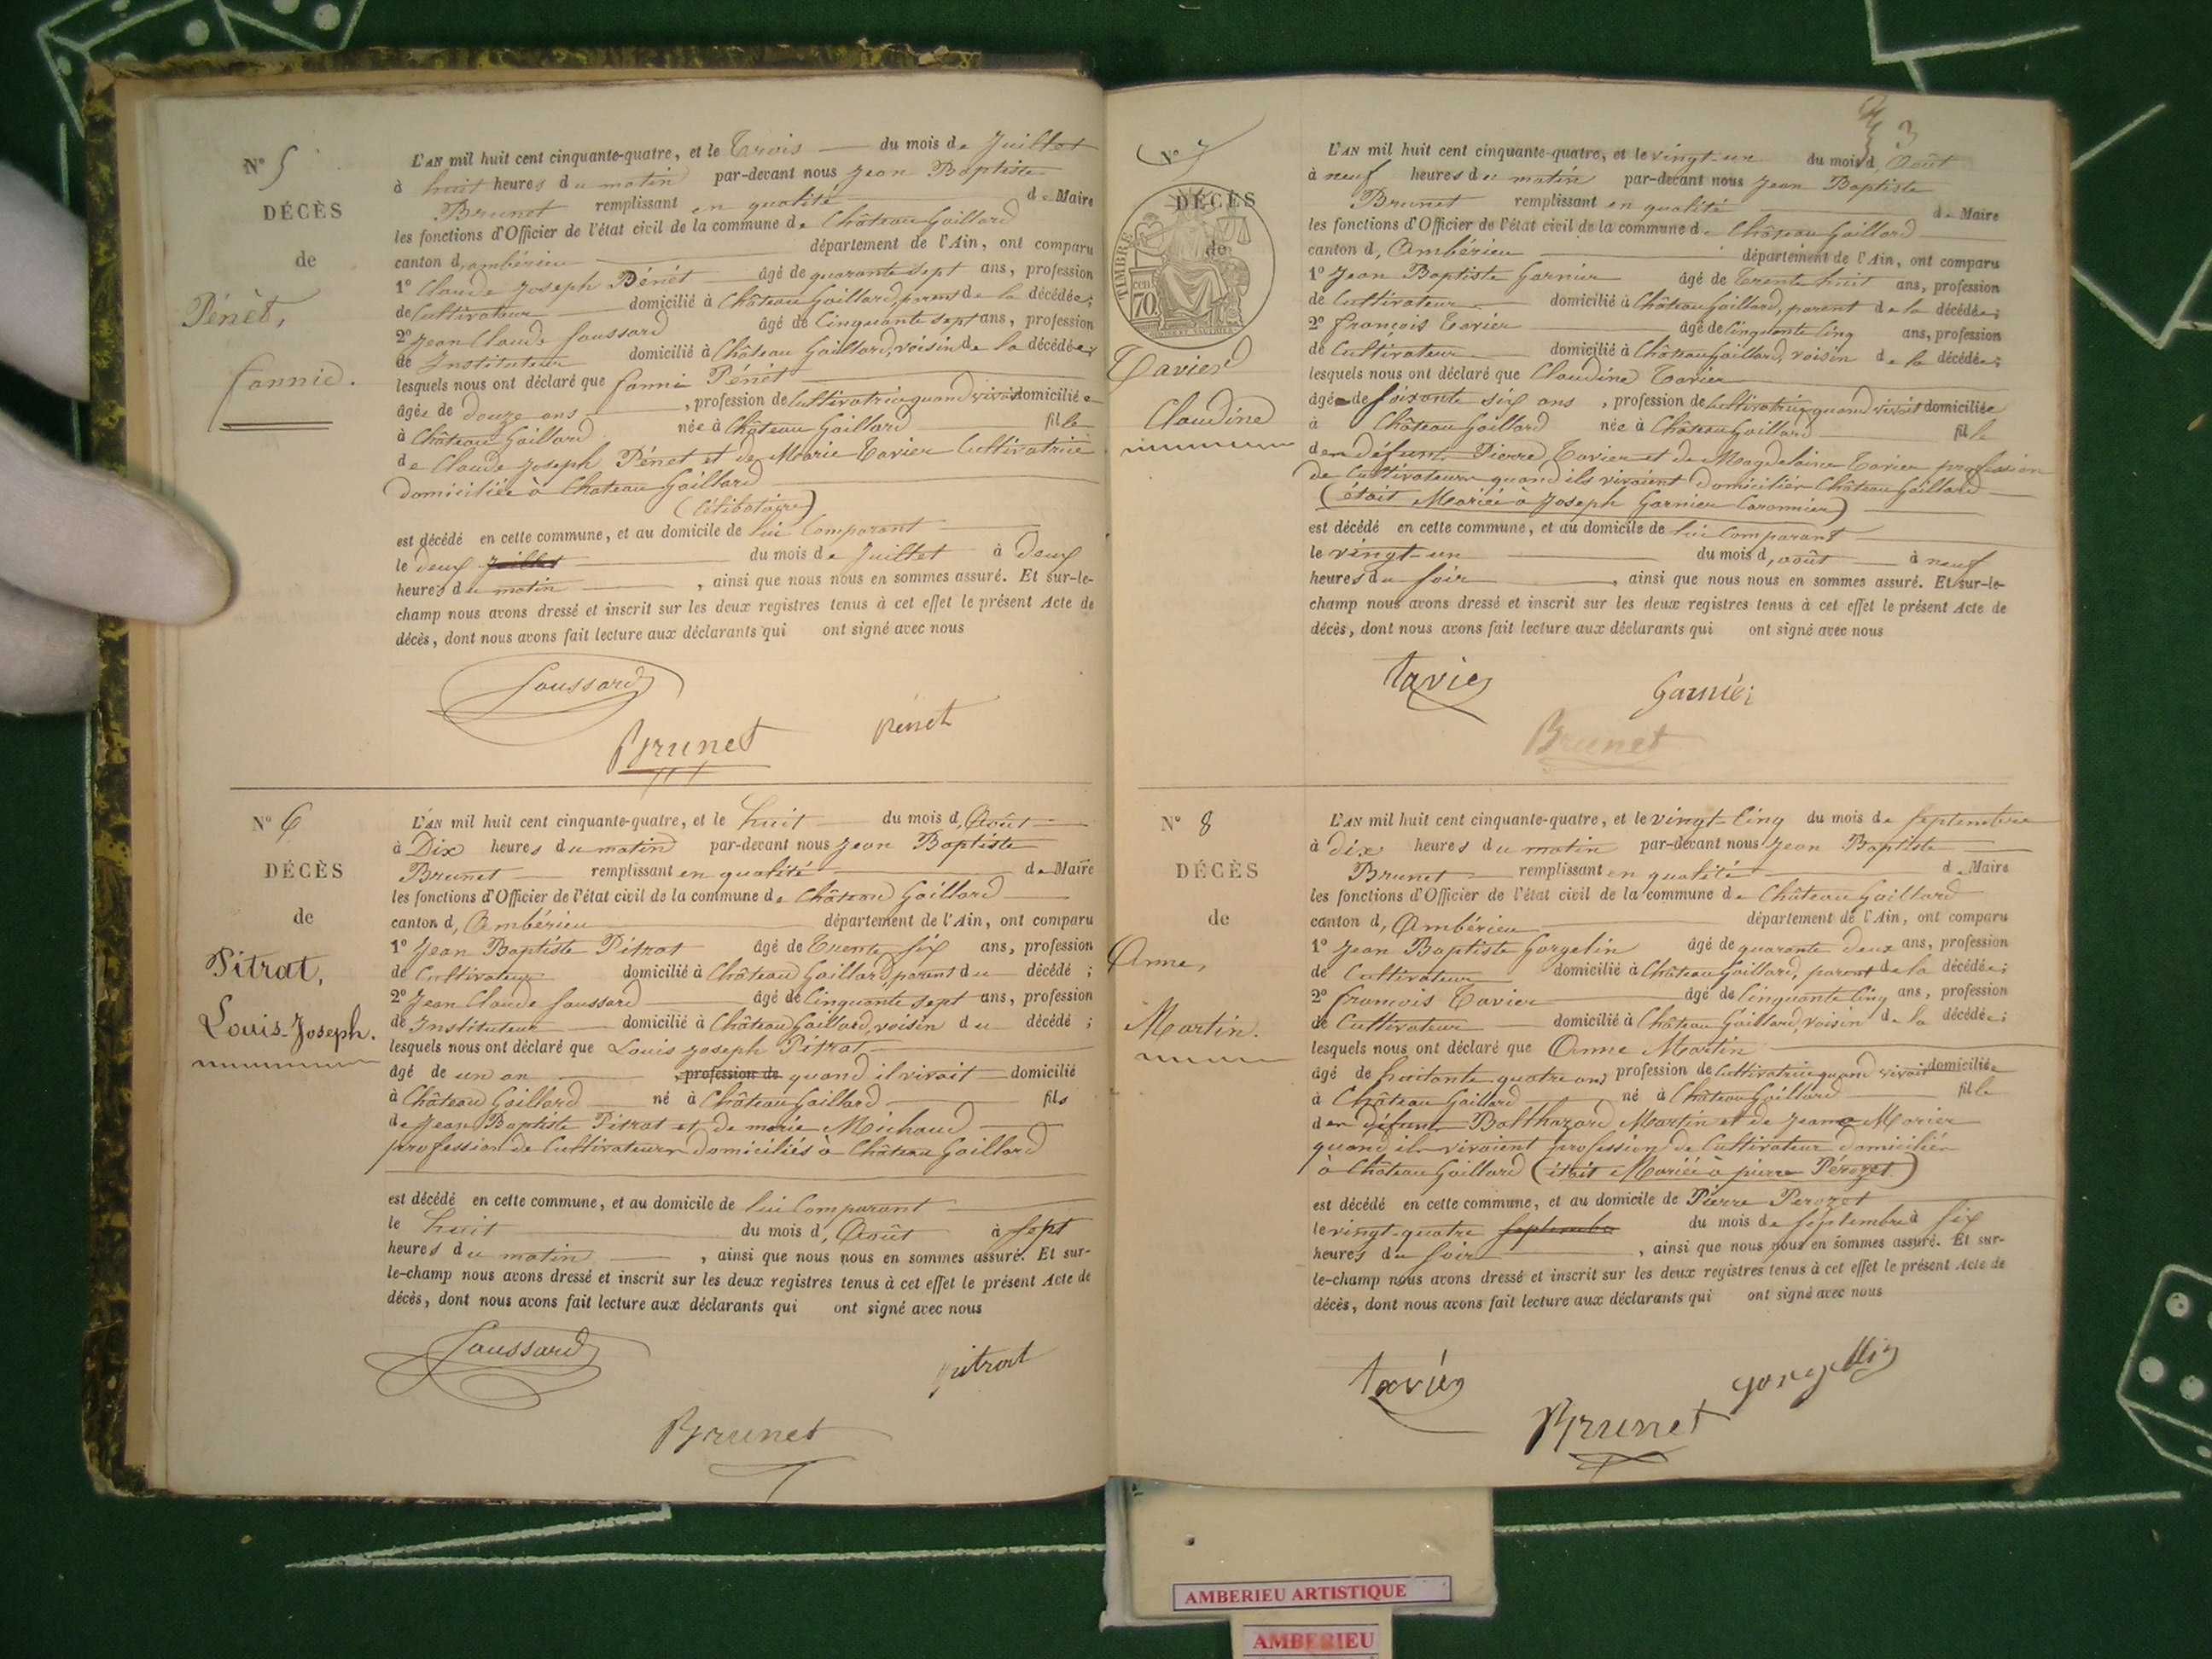 N° 5
DÉCÈS
de
Pénèt,
fannie.
L'AN mil huit cent cinquante-quatre, et le Trois du mois de Juillet
à huit heures du matin par-devant nous Jean Baptiste
Brunet remplissant en qualité de Maire
les fonctions d'Officier de l'état civil de la commune de Château Gaillard
canton d'ambérieu département de l'Ain, ont comparu
1° Claude Joseph Pénét âgé de quarante sept ans, profession
de Cultivateur domicilié à Château Gaillard, parent de la décédée;
2° Jean Claude Joussard âgé de Cinquante sept ans, profession
de Instituteur domicilié à Château Gaillard, voisin de la décédée;
lesquels nous ont déclaré que fanni Pénét
âgée de douze ans, profession de Cultivatrice quand vivait domiciliée
à Château Gaillard née à Château Gaillard fille
de Claude Joseph Pénet et de Marie Tavier Cultivatrice
domiciliée à Chateau Gaillard
(Célibataire)
est décédé en cette commune, et au domicile de lui Comparant
le deux juillet du mois de Juillet à deux
heures du matin, ainsi que nous nous en sommes assuré. Et sur-le-
champ nous avons dressé et inscrit sur les deux registres tenus à cet effet le présent Acte de
décès, dont nous avons fait lecture aux déclarants qui ont signé avec nous
Joussard
Brunet
Pénet
N° 6
DÉCÈS
de
Pitrat,
Louis-Joseph.
L'AN mil huit cent cinquante-quatre, et le huit du mois d'Août
à Dix heures du matin par-devant nous Jean Baptiste
Brunet remplissant en qualité de Maire
les fonctions d'Officier de l'état civil de la commune de Château Gaillard
canton d'Ambérieu département de l'Ain, ont comparu
1° Jean Baptiste Pitrat âgé de Trente six ans, profession
de Cultivateur domicilié à Château Gaillard, parent du décédé;
2° Jean Claude Joussard âgé de Cinquante sept ans, profession
de Instituteur domicilié à Château Gaillard, voisin du décédé;
lesquels nous ont déclaré que Louis joseph Pitrat
âgé de un an, profession de quand il vivait domicilié
à Château Gaillard né à Château Gaillard fils
de Jean Baptiste Pitrat et de marie Michaud
profession de Cultivateurs domiciliés à Château Gaillard
est décédé en cette commune, et au domicile de lui Comparant
le huit du mois d'Août à sept
heures du matin, ainsi que nous nous en sommes assuré. Et sur-
le-champ nous avons dressé et inscrit sur les deux registres tenus à cet effet le présent Acte de
décès, dont nous avons fait lecture aux déclarants qui ont signé avec nous
Joussard
pitrat
Brunet
3
N° 7
DÉCÈS
de
TIMBRE
cen 70
Tavier
Claudine
L'AN mil huit cent cinquante-quatre, et le vingt-un du mois d'Août
à neuf heures du matin par-devant nous Jean Baptiste
Brunet remplissant en qualité de Maire
les fonctions d'Officier de l'état civil de la commune de Château Gaillard
canton d'Ambérieu département de l'Ain, ont comparu
1° Jean Baptiste Garnier âgé de Trente huit ans, profession
de Cultivateur domicilié à Château Gaillard, parent de la décédée;
2° françois Tavier âgé de Cinquante Cinq ans, profession
de Cultivateur domicilié à Château Gaillard, voisin de la décédée;
lesquels nous ont déclaré que Claudine Tavier
âgée de soixante six ans, profession de Cultivatrice quand vivait domiciliée
à Château Gaillard née à Château Gaillard fille
des défunt Pierre Tavier et de Magdelaine Tavier profession
de Cultivateurs quand ils vivaient domiciliés Château Gaillard
(était Mariée à Joseph Garnier)
est décédé en cette commune, et au domicile de lui Comparant
le vingt-un du mois d'août à neuf
heures du soir, ainsi que nous nous en sommes assuré. Et sur-le-
champ nous avons dressé et inscrit sur les deux registres tenus à cet effet le présent Acte de
décès, dont nous avons fait lecture aux déclarants qui ont signé avec nous
tavier
Garnier
Brunet
N° 8
DÉCÈS
de
Anne,
Martin.
L'AN mil huit cent cinquante-quatre, et le vingt-Cinq du mois de Septembre
à dix heures du matin par-devant nous Jean Baptiste
Brunet remplissant en qualité de Maire
les fonctions d'Officier de l'état civil de la commune de Château Gaillard
canton d'Ambérieu département de l'Ain, ont comparu
1° Jean Baptiste Gorgelin âgé de quarante deux ans, profession
de Cultivateur domicilié à Château Gaillard, parent de la décédée;
2° françois Tavier âgé de Cinquante Cinq ans, profession
de Cultivateur domicilié à Château Gaillard, voisin de la décédée;
lesquels nous ont déclaré que Anne Martin
âgé de huitante quatre ans profession de Cultivatrice quand vivait domiciliée
à Château Gaillard né à Château Gaillard fille
des défunt Balthazard Martin et de Jeanne Morier
quand ils vivaient profession de Cultivateur domiciliés
à Château Gaillard (était Mariée à pierre Pérozet)
est décédé en cette commune, et au domicile de Pierre Perozet
le vingt-quatre septembre du mois de Septembre à six
heures du soir, ainsi que nous nous en sommes assuré. Et sur-
le-champ nous avons dressé et inscrit sur les deux registres tenus à cet effet le présent Acte de
décès, dont nous avons fait lecture aux déclarants qui ont signé avec nous
tavier
gorgellin
Brunet
AMBERIEU ARTISTIQUE
AMBERIEU